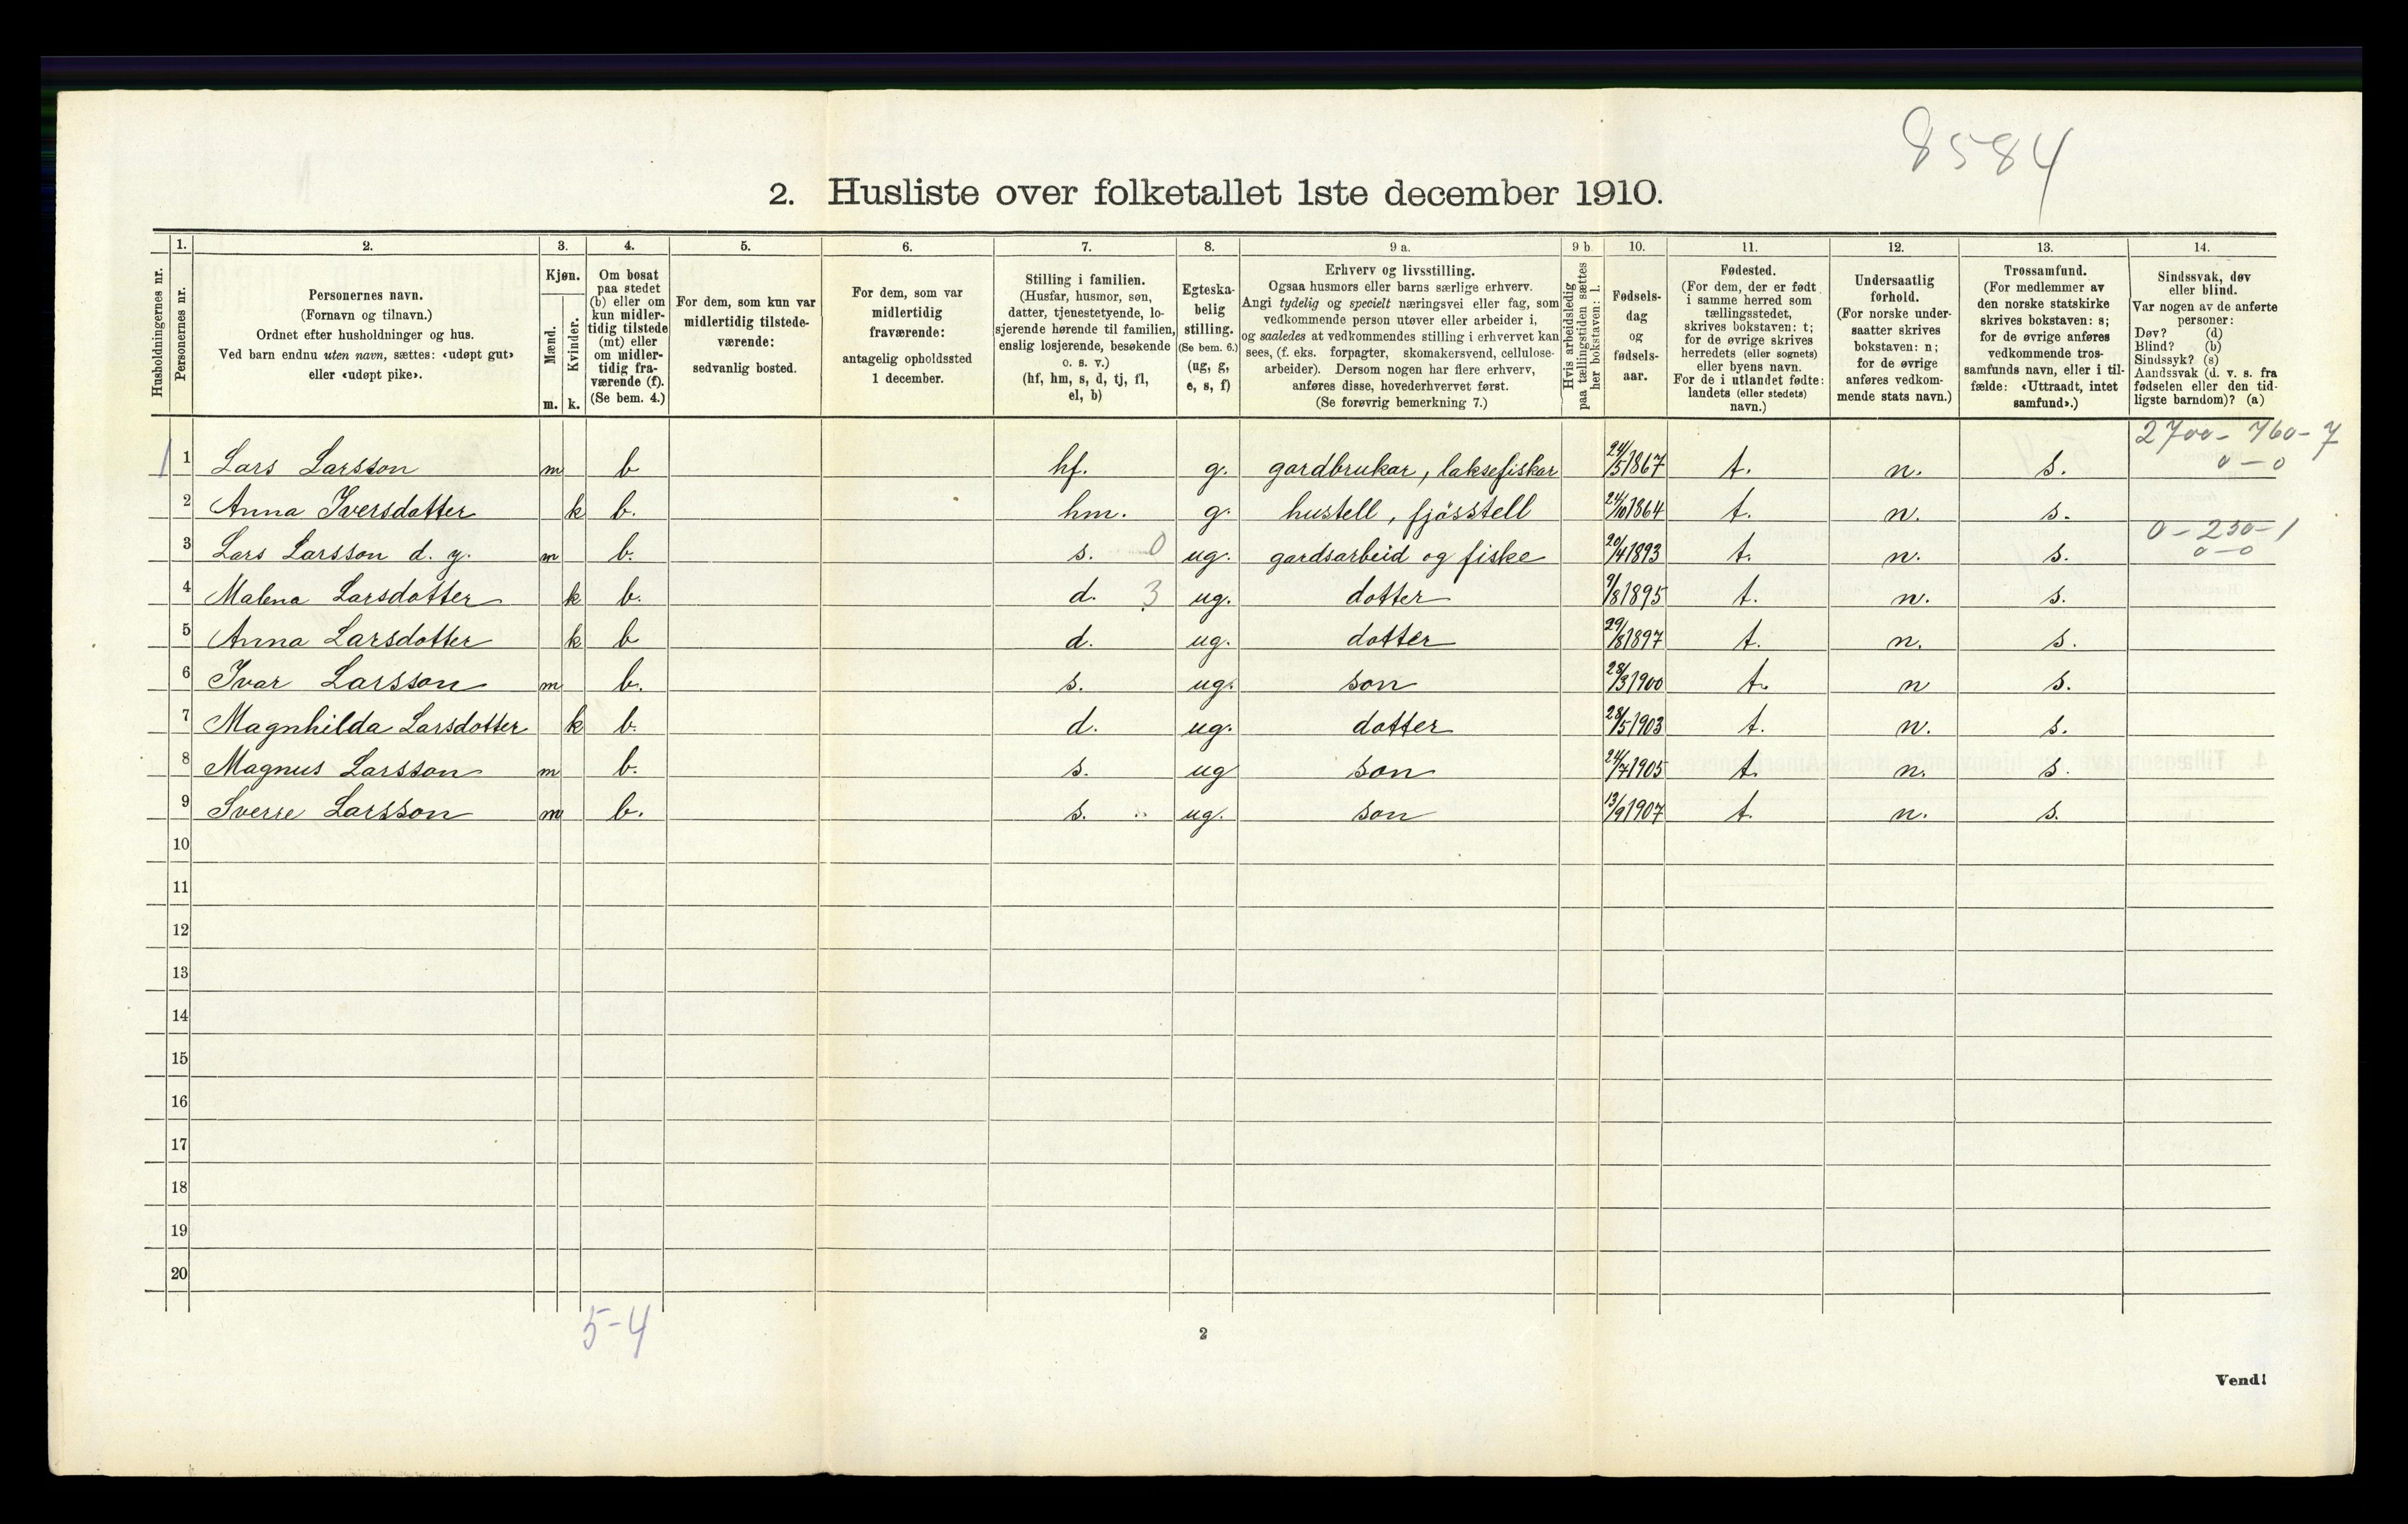 8584
2. Husliste over folketallet 1ste december 1910.
1. 2. 3. 4. 5. 6. 7. 8. 9 a. 9 b. 10. 11. 12. 13. 14.
Husholdningernes nr.
Personernes nr.
Personernes navn.
(Fornavn og tilnavn.)
Ordnet efter husholdninger og hus.
Ved barn endnu uten navn, sættes: «udøpt gut»
eller «udøpt pike».
Kjøn.
Mænd.
Kvinder.
m. k.
Om bosat
paa stedet
(b) eller om
kun midler-
tidig tilstede
(mt) eller
om midler-
tidig fra-
værende (f).
(Se bem. 4.)
For dem, som kun var
midlertidig tilstede-
værende:
sedvanlig bosted.
For dem, som var
midlertidig
fraværende:
antagelig opholdssted
1 december.
Stilling i familien.
(Husfar, husmor, søn,
datter, tjenestetyende, lo-
sjerende hørende til familien,
enslig losjerende, besøkende
o. s. v.)
(hf, hm, s, d, tj, fl,
el, b)
Egteska-
belig
stilling.
(Se bem. 6.)
(ug, g,
e, s, f)
Erhverv og livsstilling.
Ogsaa husmors eller barns særlige erhverv.
Angi tydelig og specielt næringsvei eller fag, som
vedkommende person utøver eller arbeider i,
og saaledes at vedkommendes stilling i erhvervet kan
sees, (f. eks. forpagter, skomakersvend, cellulose-
arbeider). Dersom nogen har flere erhverv,
anføres disse, hovederhvervet først.
(Se forøvrig bemerkning 7.)
Hvis arbeidsledig
paa tællingstiden sættes
her bokstaven: l.
Fødsels-
dag
og
fødsels-
aar.
Fødested.
(For dem, der er født
i samme herred som
tællingsstedet,
skrives bokstaven: t;
for de øvrige skrives
herredets (eller sognets)
eller byens navn.
For de i utlandet fødte:
landets (eller stedets)
navn.)
Undersaatlig
forhold.
(For norske under-
saatter skrives
bokstaven: n;
for de øvrige
anføres vedkom-
mende stats navn.)
Trossamfund.
(For medlemmer av
den norske statskirke
skrives bokstaven: s;
for de øvrige anføres
vedkommende tros-
samfunds navn, eller i til-
fælde: «Uttraadt, intet
samfund».)
Sindssvak, døv
eller blind.
Var nogen av de anførte
personer:
Døv? (d)
Blind? (b)
Sindssyk? (s)
Aandssvak (d. v. s. fra
fødselen eller den tid-
ligste barndom)? (a)
2700- 760- 7
1 1 Lars Larsson m b hf. g. gardbrukar, laksefiskar 24/5 1867 t. n. s. 0-0
2 Anna Iversdotter k b. hm. g. hustell, fjösstell 24/10 1864 t. n. s.
0-230-1
3 Lars Larsson d. y. m b. s. 0 ug. gardsarbeid og fiske 20/4 1893 t. n. s. 0-0
4 Malena Larsdotter k b. d. 3 ug. dotter 9/8 1895 t. n. s.
5 Anna Larsdotter k b d. ug. dotter 29/8 1897 t. n. s.
6 Ivar Larsson m b. s. ug. son 28/3 1900 t. n s.
7 Magnhilda Larsdotter k b. d. ug. dotter 28/5 1903 t. n. s.
8 Magnus Larsson m b. s. ug son 24/7 1905 t. n. s.
9 Sverre Larsson m b. s. ug. son 13/9 1907 t. n. s.
10
11
12
13
14
15
16
17
18
19
20
5-4
2
Vend!